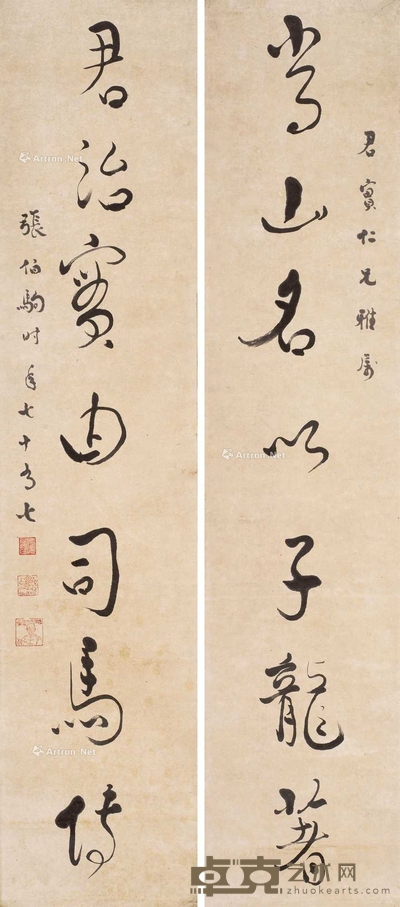 君實仁兄雅屬
常山名以子龍著
君治實由司馬傳
張伯駒時年七十有七
Artron.Net
Artron.Net
Artron.Net
卓克艺术网
zhuokearts.com